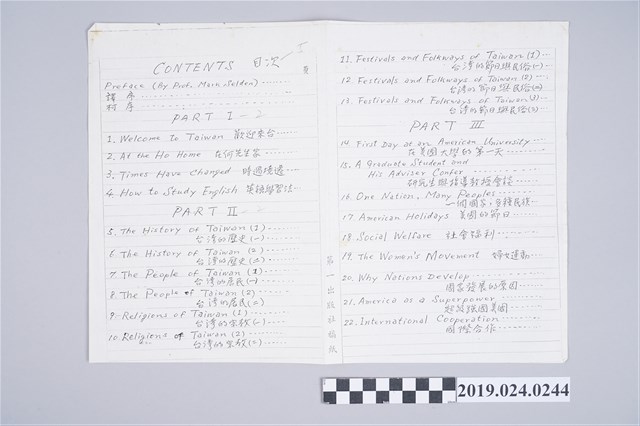 CONTENTS 目次
Preface (By Prof. Mark Selden)
譯序
村序
PART I
1. Welcome to Taiwan 歡迎來台
2. At the Ho Home 在何先生家
3. Times Have Changed 時過境遷
4. How to Study English 英語學習法
PART II
5. The History of Taiwan (1)
台灣的歷史(一)
6. The History of Taiwan (2)
台灣的歷史(二)
7. The People of Taiwan (1)
台灣的居民(一)
8. The People of Taiwan (2)
台灣的居民(二)
9. Religions of Taiwan (1)
台灣的宗教(一)
10. Religions of Taiwan (2)
台灣的宗教(二)
11. Festivals and Folkways of Taiwan (1)
台灣的節日與民俗(一)
12. Festivals and Folkways of Taiwan (2)
台灣的節日與民俗(二)
13. Festivals and Folkways of Taiwan (3)
台灣的節日與民俗(三)
PART III
14. First Day at an American University
在美國大學的第一天
15. A Graduate Student and
His Adviser Confer
研究生與指導教授會談
16. One Nation, Many Peoples
一個國家,多種民族
17. American Holidays 美國的節日
18. Social Welfare 社會福利
19. The Women's Movement 婦女運動
20. Why Nations Develop
國家發展的原因
21. America as a Superpower
超級強國美國
22. International Cooperation
國際合作
第一出版社稿紙
2019.024.0244